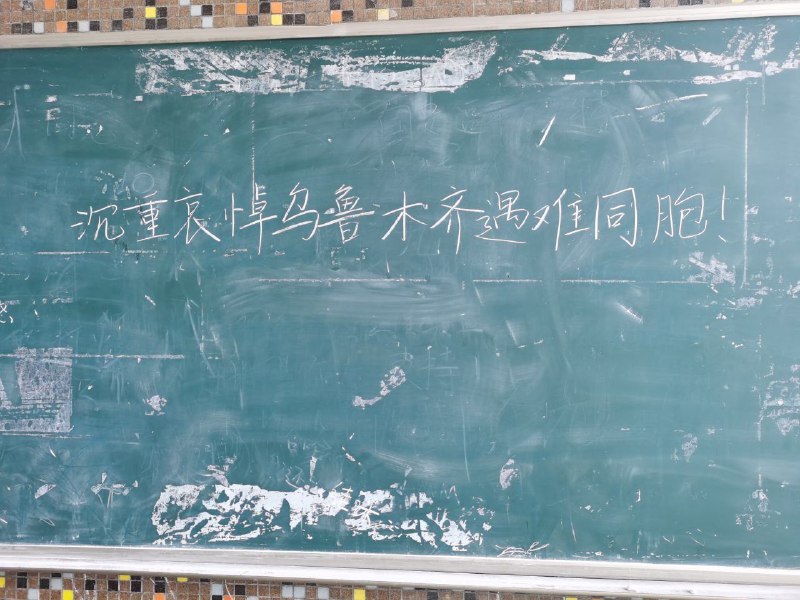 沉重哀悼乌鲁木齐遇难同胞!